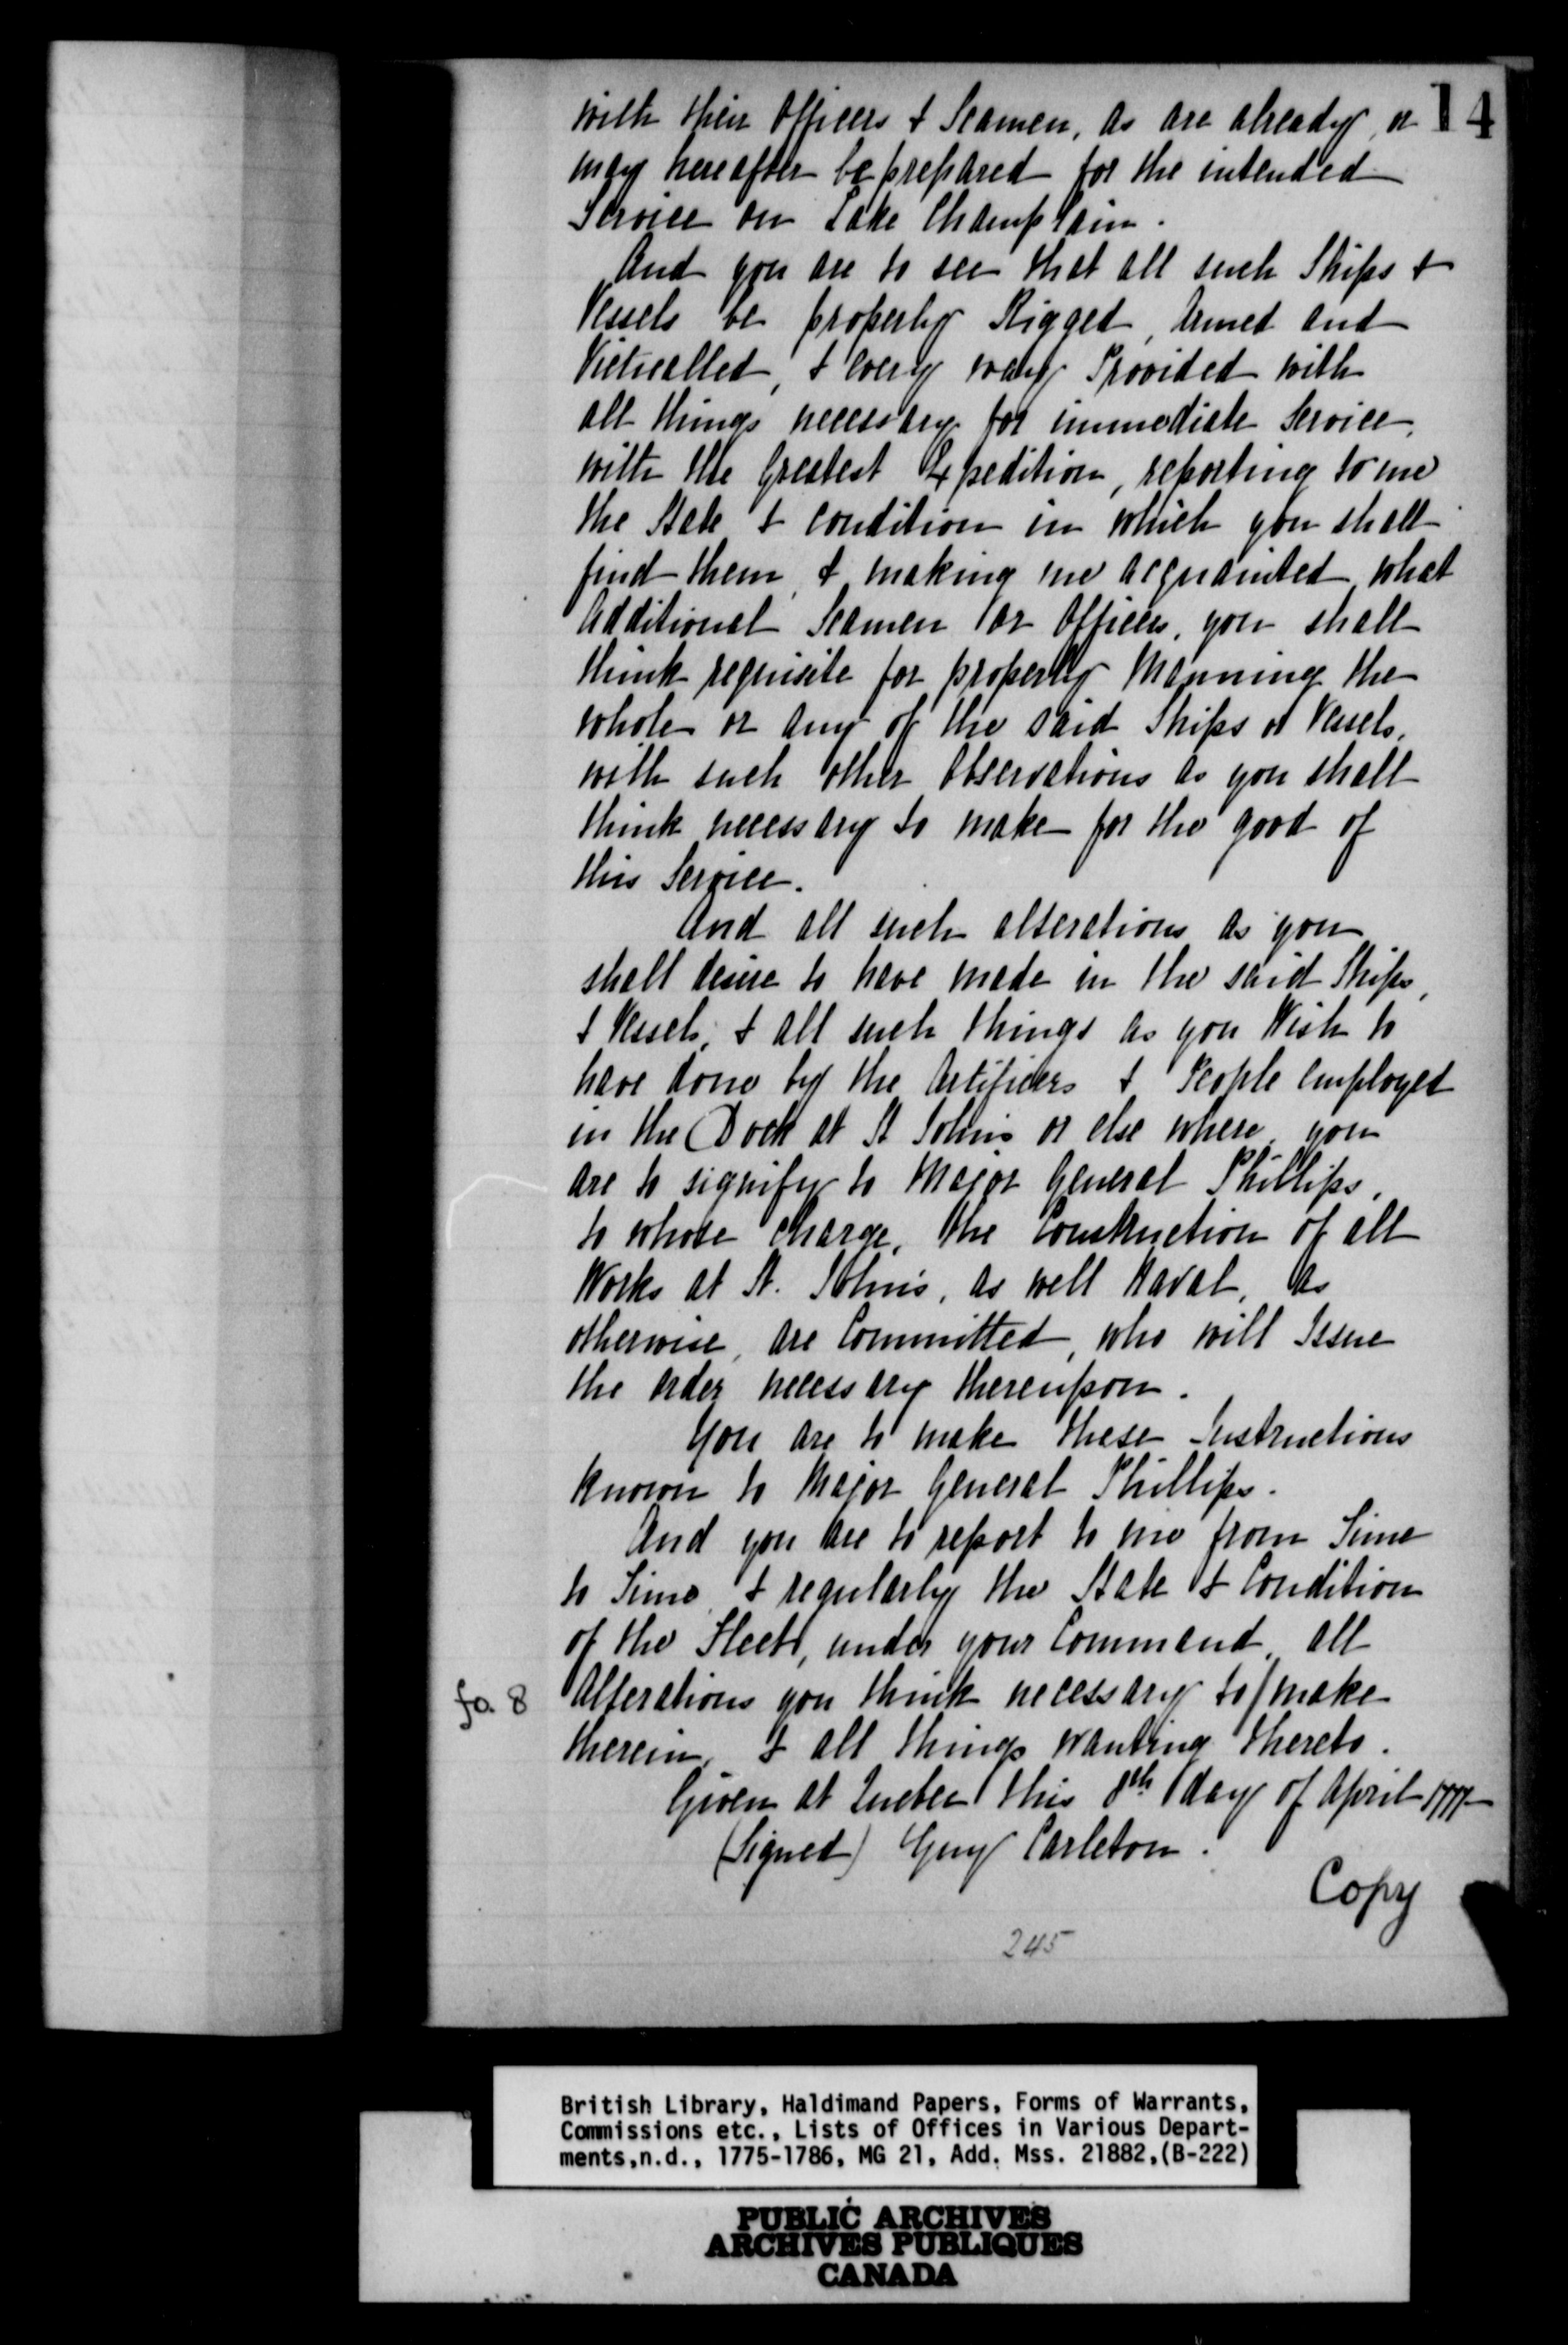 14
with their Officers & Seamen, as are already, or
may hereafter be prepared for the intended
Service on Lake Champlain.
And you are to see that all such Ships &
Vessels be properly Rigged, Armed and
Victualled, & every way Provided with
all things necessary for immediate Service,
with the Greatest Expedition, reporting to me
the State & Condition in which you shall
find them, & making me acquainted, what
Additional Seamen or Officers, you shall
think requisite for properly Manning the
whole or any of the said Ships or Vessels,
with such other Observations as you shall
think necessary to make for the good of
this Service.
And all such alterations as you
shall desire to have made in the said Ships,
& Vessels, & all such things as you Wish to
have done by the Artificers & People employed
in the Dock at St Johns or else where, you
are to signify to Major General Phillips,
to whose charge, the Construction of all
Works at St. Johns, as well Naval, as
otherwise, are Committed, who will Issue
the order necessary thereupon.
You are to make these Instructions
known to Major General Phillips.
And you are to report to me from Time
to Time, & regularly the State & Condition
of the Fleet, under your Command, all
fo. 8 Alterations you think necessary to/make
therein, & all things wanting thereto.
Given at Quebec this 8th day of April 1777
(Signed) Guy Carleton.
Copy
245
British Library, Haldimand Papers, Forms of Warrants,
Commissions etc., Lists of Offices in Various Depart-
ments,n.d., 1775-1786, MG 21, Add. Mss. 21882,(B-222)
PUBLIC ARCHIVES
ARCHIVES PUBLIQUES
CANADA